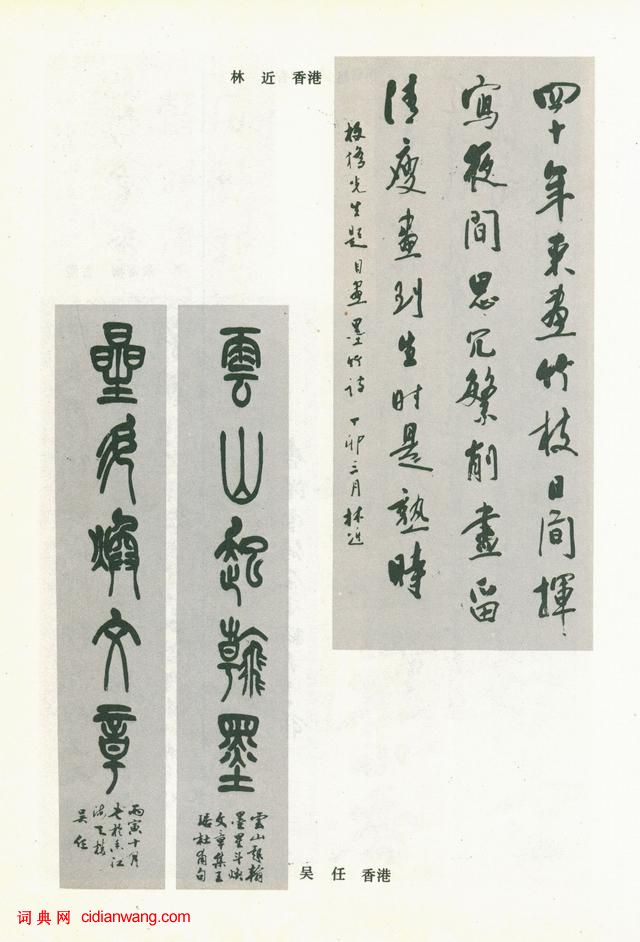 林 近 香港
四十年來畫竹枝日間揮
寫夜間思冗繁削盡留
清瘦畫到生時是熟時
板橋先生題自畫墨竹詩 丁卯三月 林近
雲山起翰墨
雲山起翰
墨星斗煥
文章集王
杜甫句
星斗煥文章
丙寅十月
書於香江
海天樓
吴任
吴 任 香港
词典网 cidianwang.com